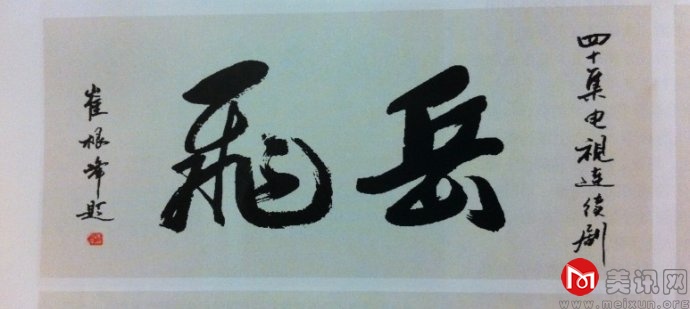 四十集电视连续剧
岳飛
崔根峰题
美讯网
www.meixun.org